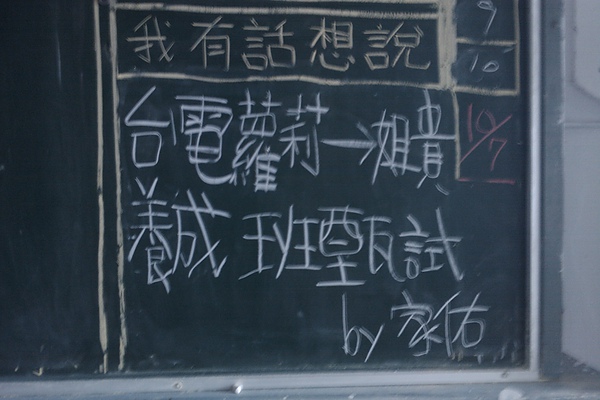 我有話想說
9
10
台電蘿莉→姐貴
10/7
養成班甄試
by 家佑